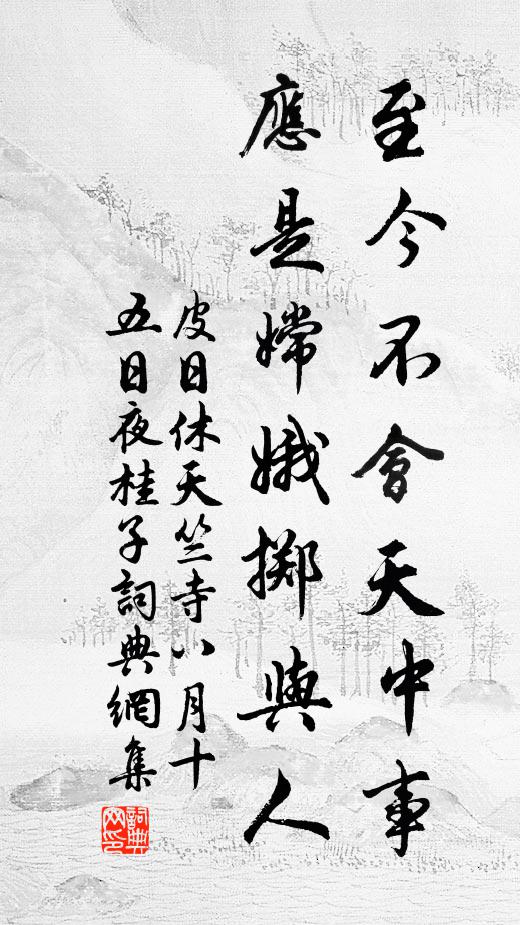 至今不會天中事
應是嫦娥擲與人
皮日休天竺寺八月十
五日夜桂子詞典網集
詞典
网印